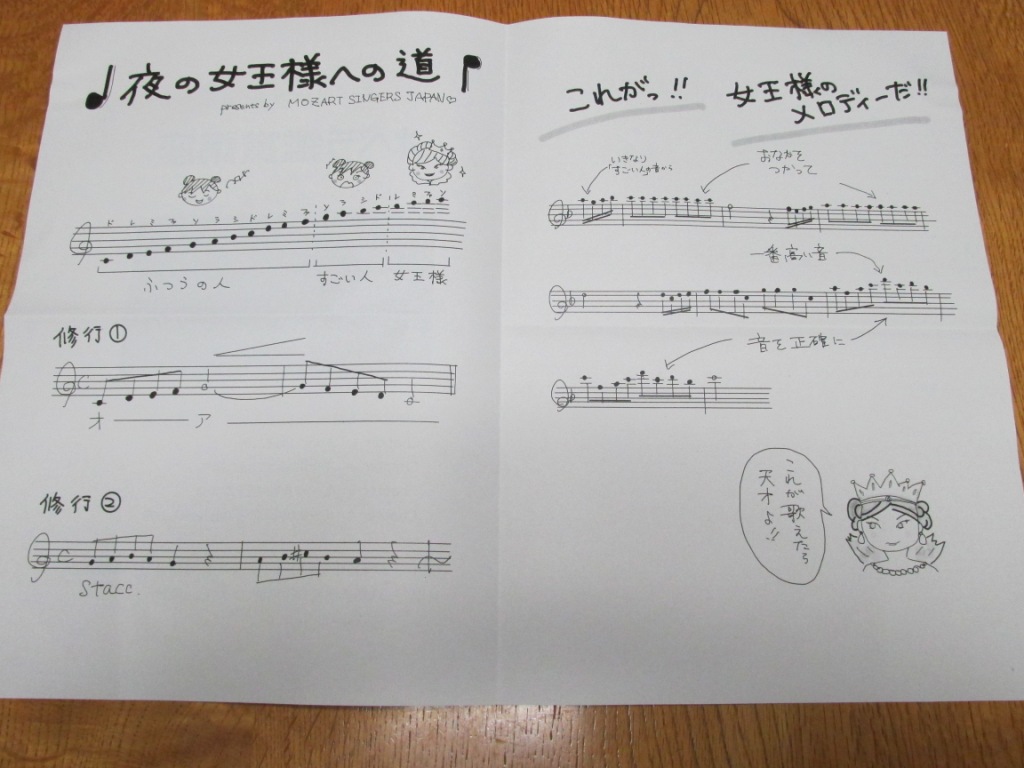 夜の女王様への道
presents by MOZART SINGERS JAPAN♡
ド レ ミ ファ ソ ラ シ ド レ ミ ファ ソ ラ シ ド レ ミ ファ ソ
ふつうの人
すごい人
女王様
修行①
オ ア
修行②
Stacc.
これがっ!!
女王様の
メロディーだ!!
いきなり
「すごい人」の音から
おなかを
つかって
一番高い音
音を正確に
これが歌えたら
天才よ!!